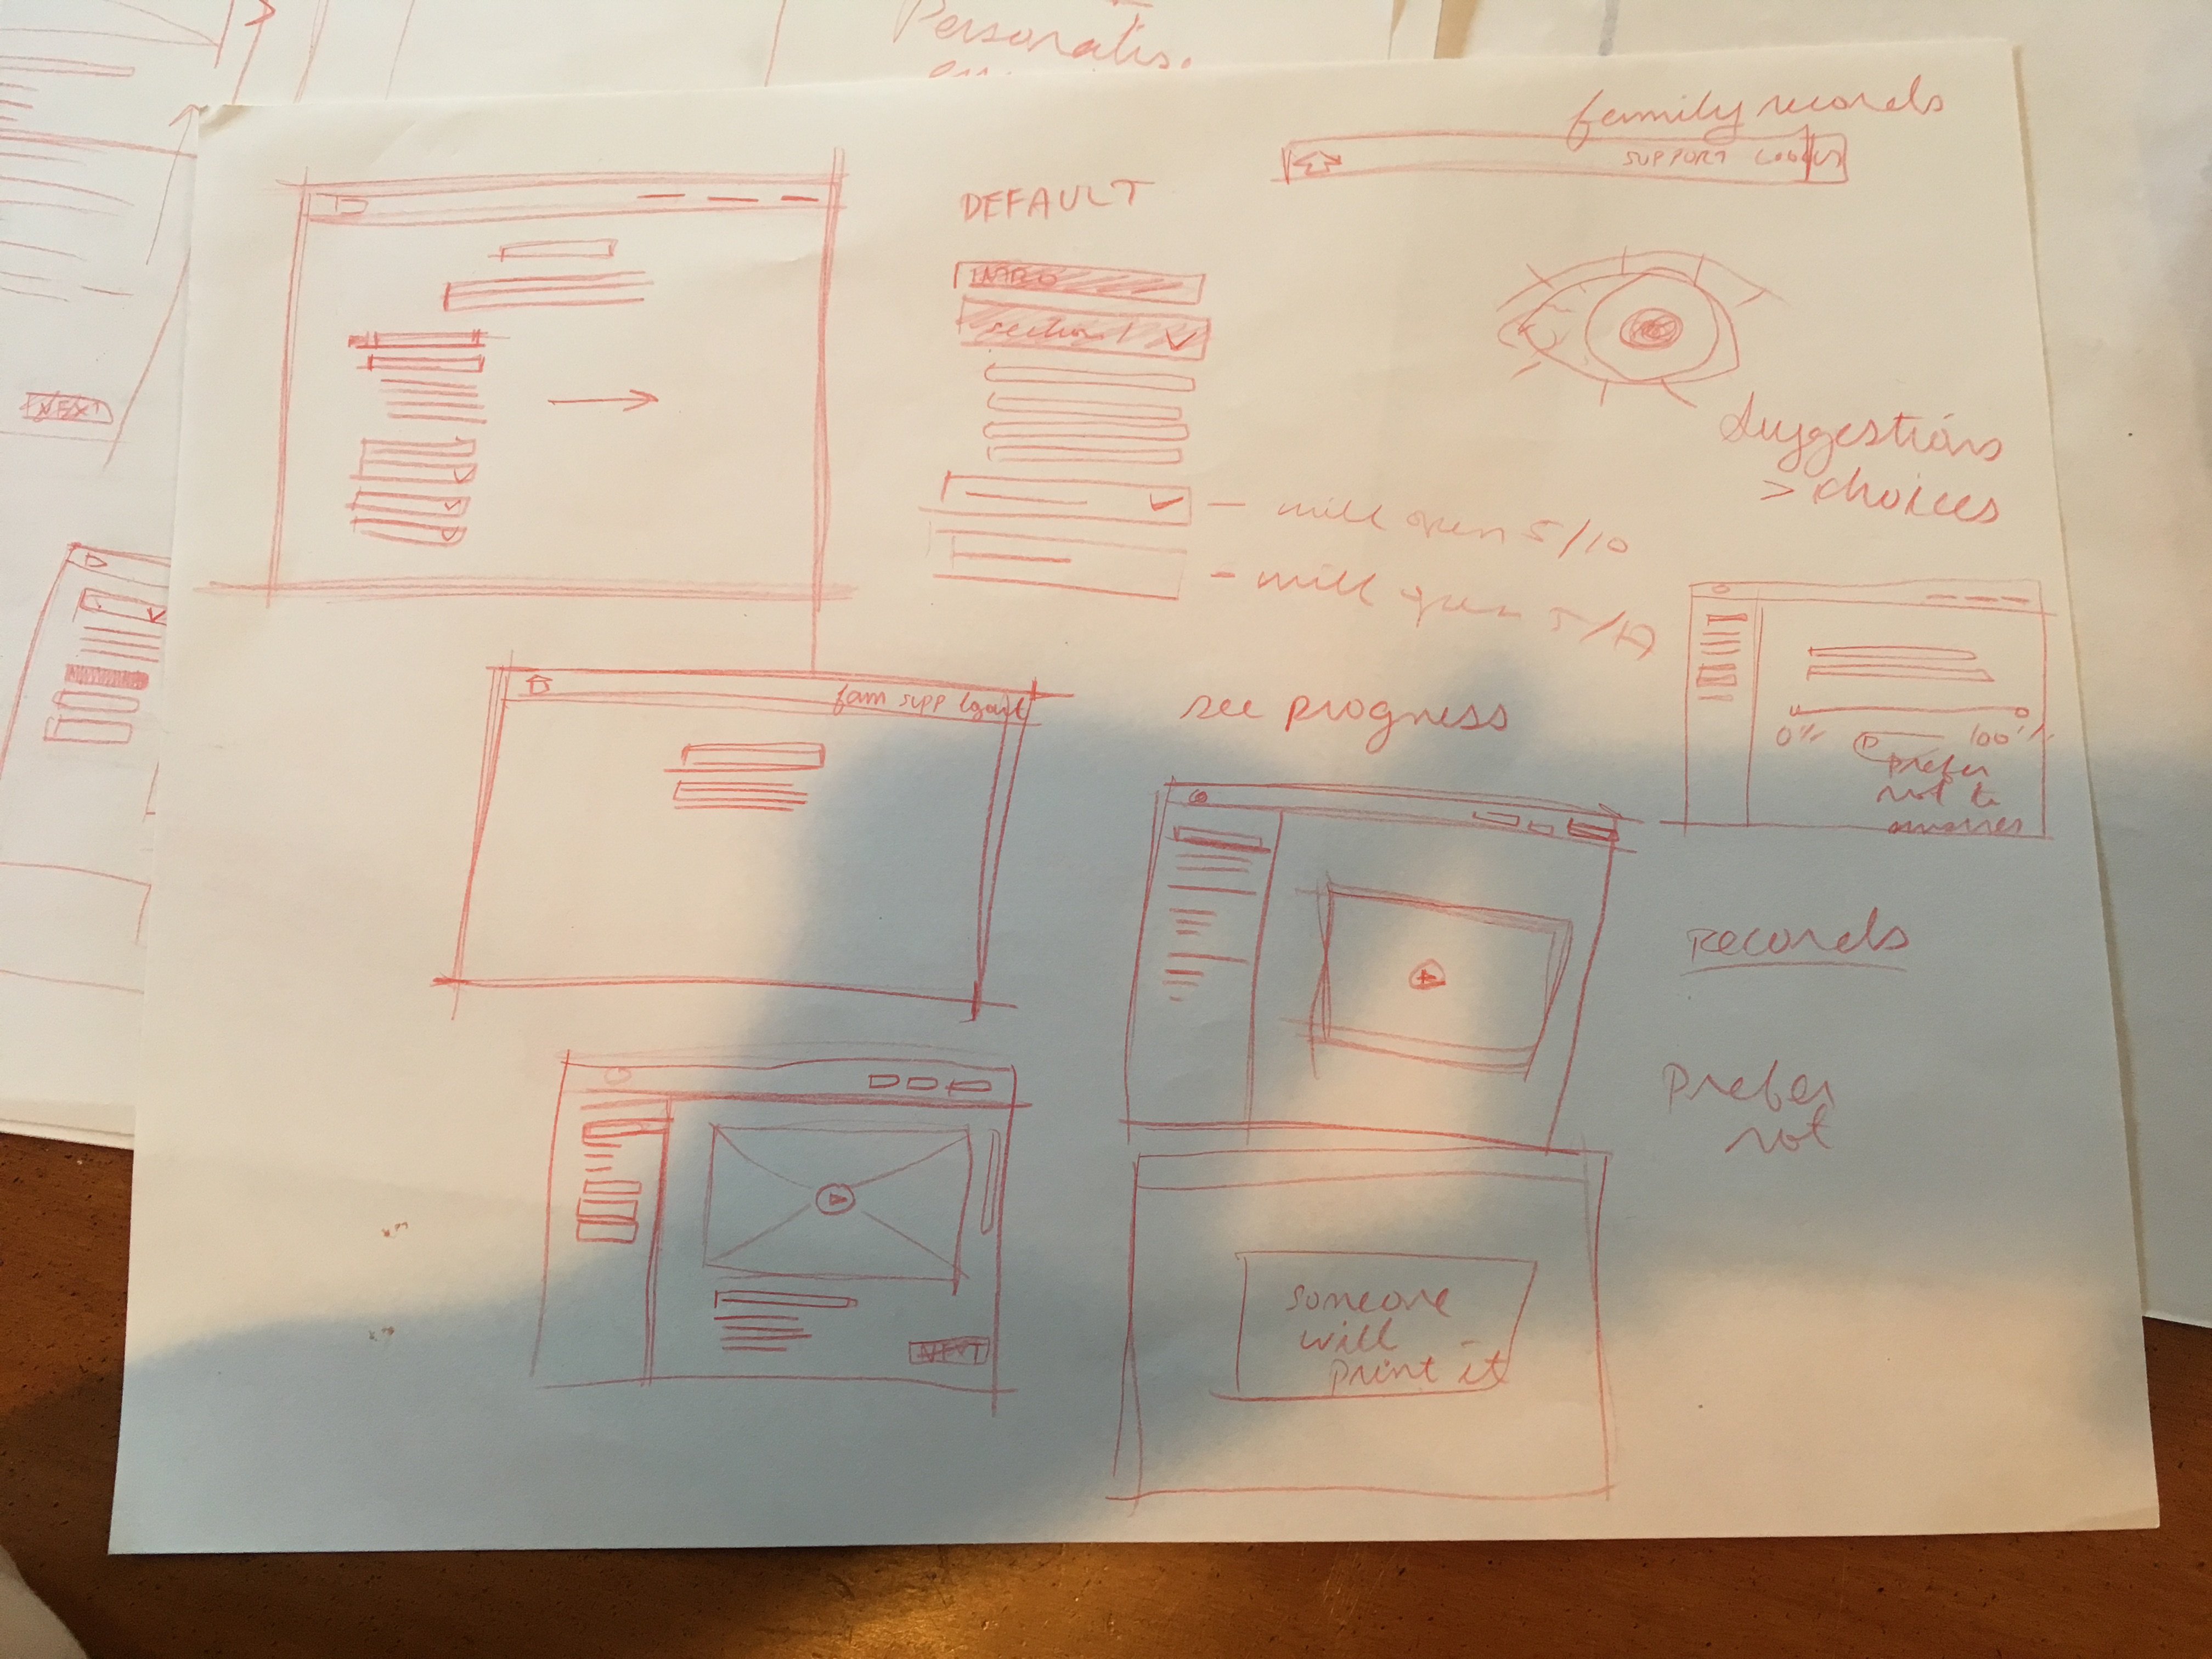 Personalis.
family records
SUPPORT
DEFAULT
INTRO
section 1
NEXT
Suggestions
> choices
— will open 5/10
– will open
fam supp logout
see progress
0% 100%
prefer
not to
answer
Records
prefer
not
NEXT
someone
will
print it